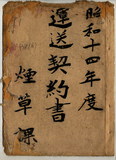 昭和十四年度
運送契約書
煙草課